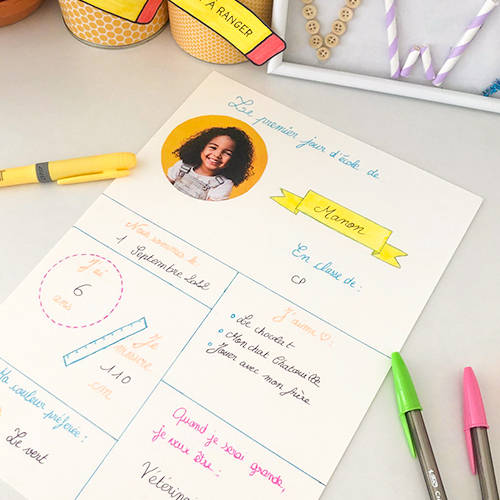 À RANGER
Le premier jour d'école de
Manon
En classe de :
CP
Nous sommes le
1 Septembre 2022
J'ai
6
ans
Je
mesure
110
cm
J'aime ♡:
Le chocolat
Mon chat Chatouille
Jouer avec mon frère
Ma couleur préférée :
Le vert
Quand je serai grande,
je veux être :